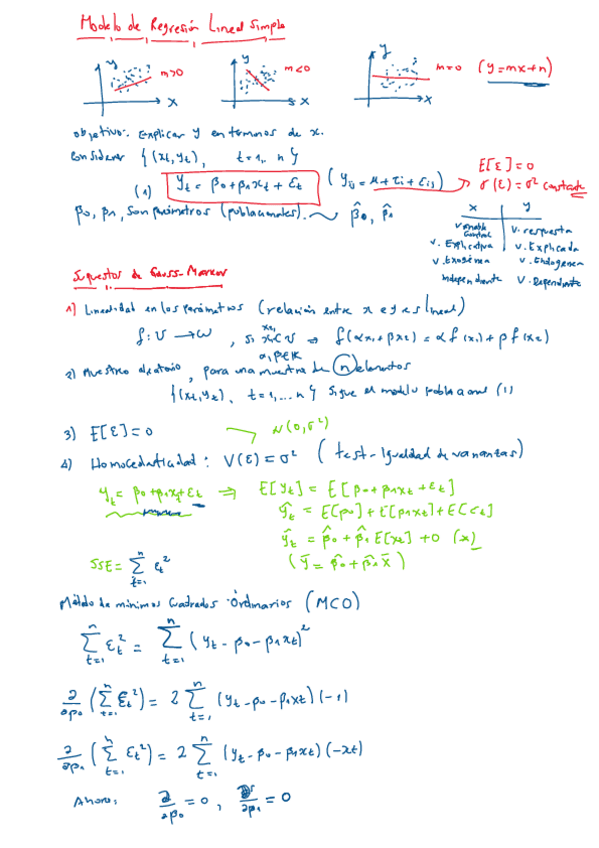 Modelo de Regresión Lineal Simple
y m>0 x
y m<0 x
y m=0 x (y=mx+n)
objetivo: Explicar y en términos de x.
Considerar {(xt, yt), t=1,.. n}
(1) yt = β0+β1xt + εt (yij = μ+τi+εij) → E[ε]=0
σ(ε)=σ² constante
β0, β1, son parámetros (poblacionales). β̂0, β̂1
x y
Variable Control V. respuesta
V. Explicativa V. Explicada
V. Exogena V. Endogena
Independiente V. Dependiente
Supuestos de Gauss-Markov
1) Linealidad en los parámetros (relación entre x e y es lineal)
f: V → W, si x1,x2 ⊂ V ⇒ f(αx1+βx2) = αf(x1)+βf(x2)
α,β∈K
2) Muestreo aleatorio, para una muestra de n elementos
{(xt, yt), t=1,...n} sigue el modelo poblacional (1)
3) E[ε]=0 N(0,σ²)
4) Homocedasticidad: V(ε)=σ² (test-Igualdad de varianzas)
yt = β0+β1xt+εt ⇒ E[yt] = E[β0+β1xt+εt]
ŷt = E[β0]+E[β1xt]+E[εt]
ŷt = β̂0+β̂1E[xt]+0 (x)
SSE = Σ(t=1, n) εt² (ȳ = β̂0+β̂1x̄)
Método de minimos Cuadrados Ordinarios (MCO)
Σ(t=1, n) εt² = Σ(t=1, n) (yt-β0-β1xt)²
∂/∂β0 (Σ(t=1, n) εt²) = 2Σ(t=1, n) (yt-β0-β1xt)(-1)
∂/∂β1 (Σ(t=1, n) εt²) = 2Σ(t=1, n) (yt-β0-β1xt)(-xt)
Ahora, ∂/∂β0 = 0, ∂/∂β1 = 0